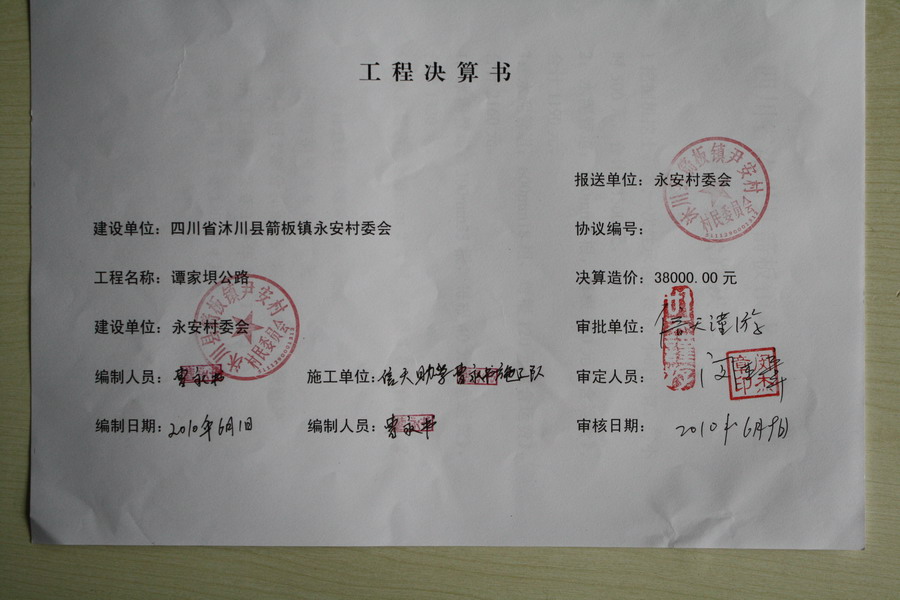 工程决算书
报送单位：永安村委会
建设单位：四川省沐川县箭板镇永安村委会
协议编号：
工程名称：谭家坝公路
决算造价：38000.00 元
建设单位：永安村委会
审批单位：信天谨游
编制人员：曹永书
施工单位：信天助学曹永书施工队
审定人员：
编制日期：2010年6月1日
编制人员：曹永书
审核日期：2010年6月9日
沐川县箭板镇尹安村
村民委员会
沐川县箭板镇尹安村
村民委员会